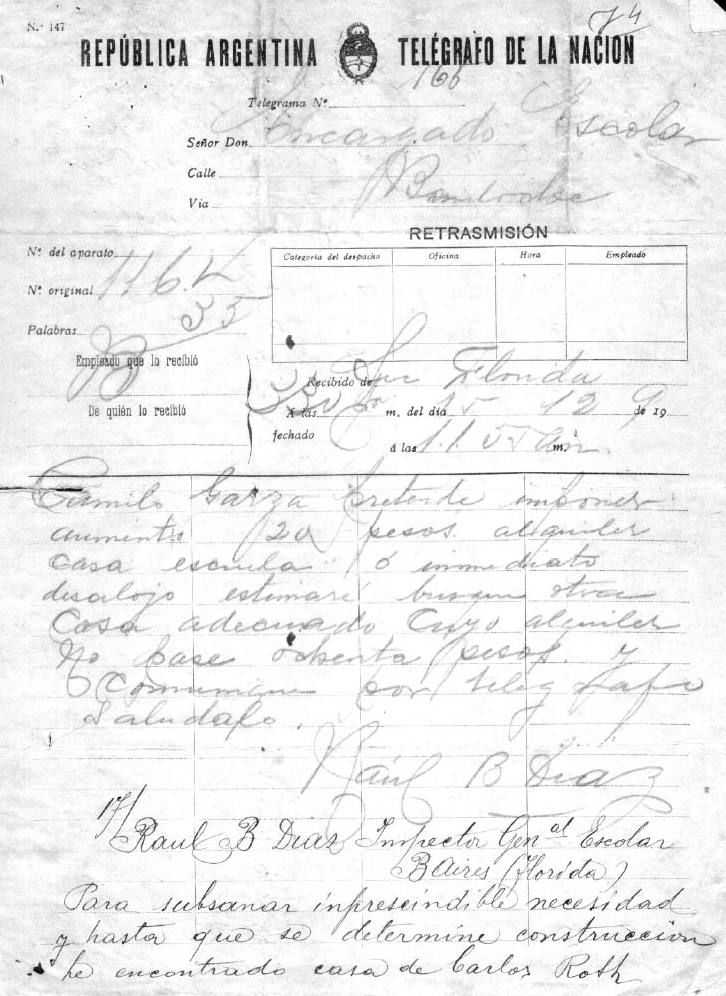 N.º 147
74
REPÚBLICA ARGENTINA TELÉGRAFO DE LA NACION
Telegrama Nº 166
Señor Don Encargado Escolar
Calle
Via
RETRASMISIÓN
Nº del aparato
Categoria del despacho Oficina Hora Empleado
Nº original 1162
Palabras 55
Empleado que lo recibió
Recibido de Florida
De quién lo recibió
Á las m. del dia 15 12 de 19 9
fechado
á las 11 55 am m.
Camilo Garza pretende imponer
aumento 20 pesos alquiler
casa escuela ó inmediato
desalojo estimaré busque otra
Casa adecuado Cuyo alquiler
No pase ochenta pesos y
Comunique por telegrafo
Saludalo.
Raúl B Diaz
17/
Raul B Diaz Inspector Gen.al Escolar
BAires (Florida)
Para subsanar inprescindible necesidad
y hasta que se determine construccion
he encontrado casa de Carlos Roth